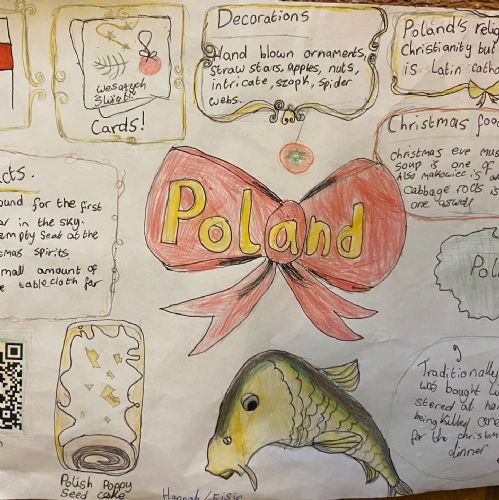 Decorations
Hand blown ornaments
straw stars, apples, nuts,
intricate, szopk, spider
webs.
Poland's relig
Christianity but
is Latin catho
wesołych
Świąt
Cards!
Christmas food
christmas eve mus
soup is one of
Also makowiec is an
cabbage rolls is
one aswell
cts.
ound for the first
ar in the sky.
empty seat at the
tmas spirits.
mall amount of
e tablecloth for
Poland
Pol
Traditionally
was bought
stored at ho
being killed
for the christm
dinner
Polish Poppy
Seed cake
Hannah/